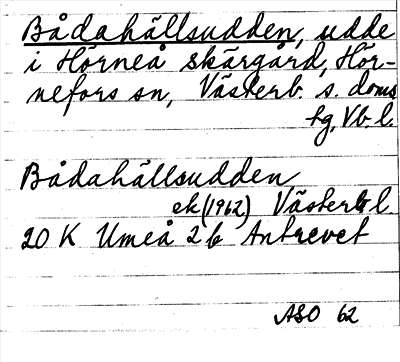 Bådahällsudden, udde
i Hörneå skärgård, Hör-
nefors sn, Västerb. s. doms
hg, Vb. l.
Bådahällsudden
ek (1962) Västerb l.
20 K Umeå 2 b Antrevet
ASO 62